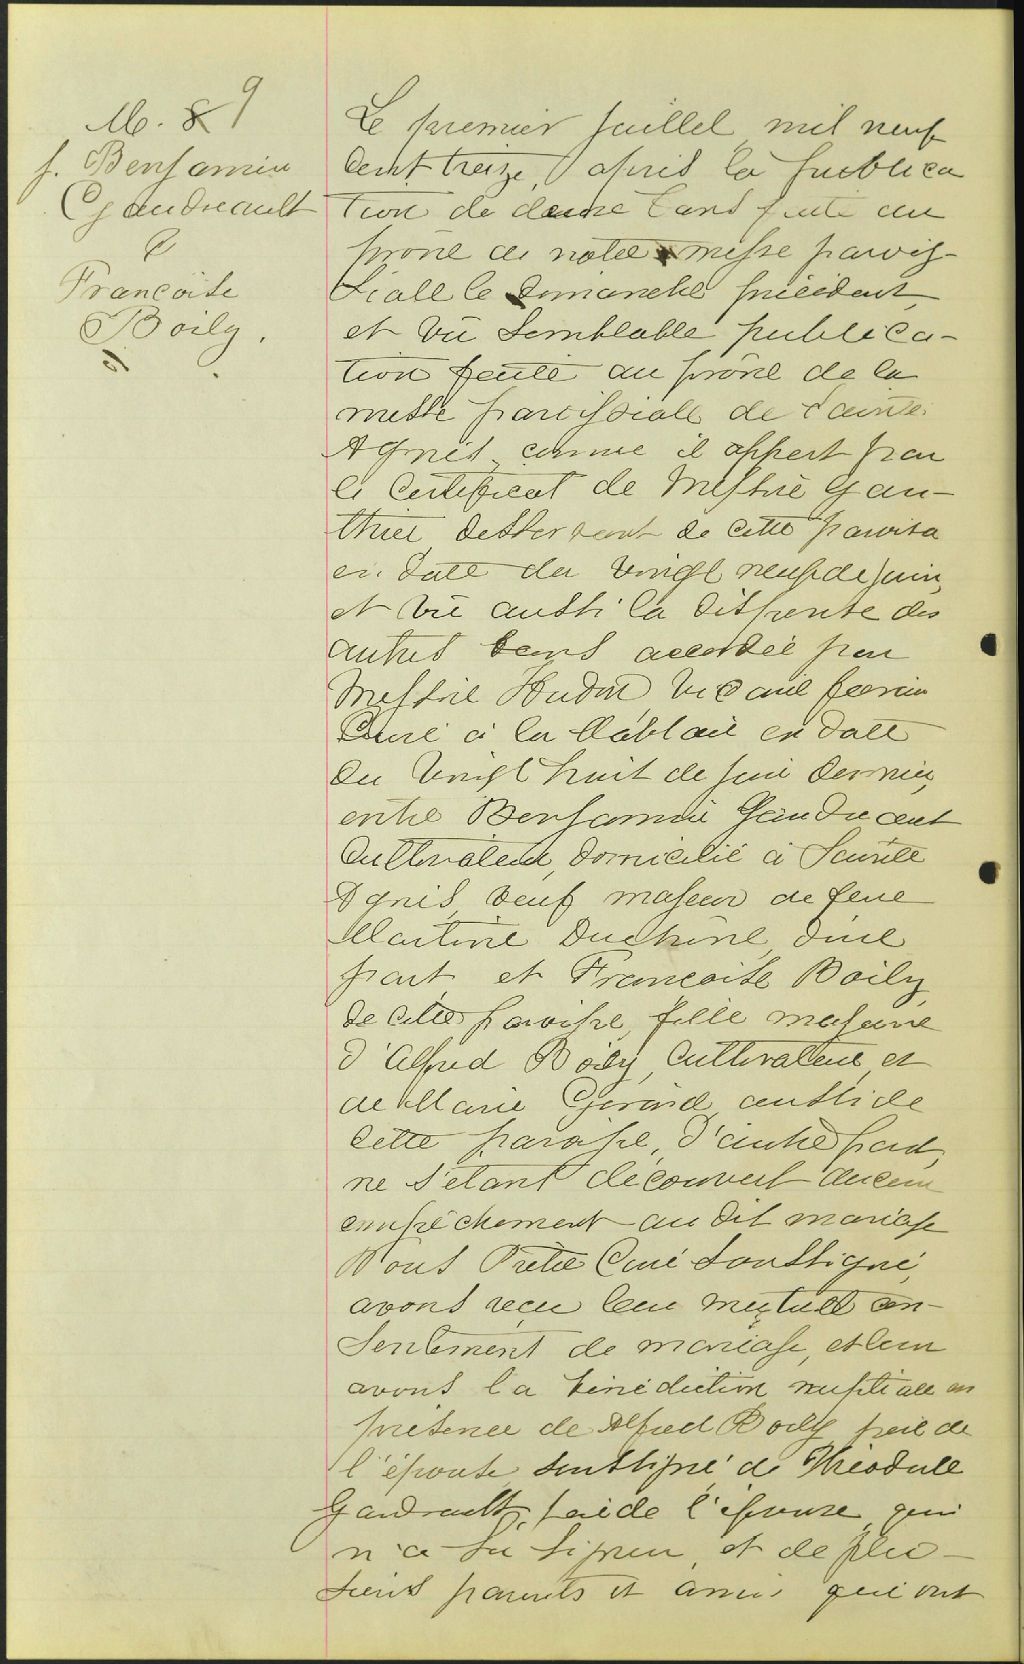 M. 8 9
J. Benjamin
Gaudreault
&
Françoise
Boily.
Le premier juillet mil neuf
cent treize, après la publica
tion de deux bans faite au
prône de notre messe parois-
siale le dimanche précédent,
et vu semblable publica-
tion faite au prône de la
messe paroissiale de Sainte
Agnès, comme il appert par
le certificat de Messire Gau-
thier desservant de cette paroisse
en date du vingt neuf de juin,
et vu aussi la dispense des
autres bans accordée par
Messire Hudon, vicaire forain
Curé à la Malbaie en date
du vingt huit de juin dernier,
entre Benjamin Gaudreault
Cultivateur, domicilié à Sainte
Agnès, veuf majeur de feue
Martine Duchêne, d'une
part, et Françoise Boily,
de cette paroisse, fille majeure
d'Alfred Boily, Cultivateur et
de Marie Girard aussi de
cette paroisse, d'autre part,
ne s'étant découvert aucun
empêchement au dit mariage
Nous Prêtre Curé soussigné,
avons reçu leur mutuel con-
sentement de mariage, et leur
avons la bénédiction nuptiale en
présence de Alfred Boily père de
l'épouse soussigné de Théodule
Gaudreault, de l'épouse, qui
n'a su signer, et de plu-
sieurs parents et amis qui ont